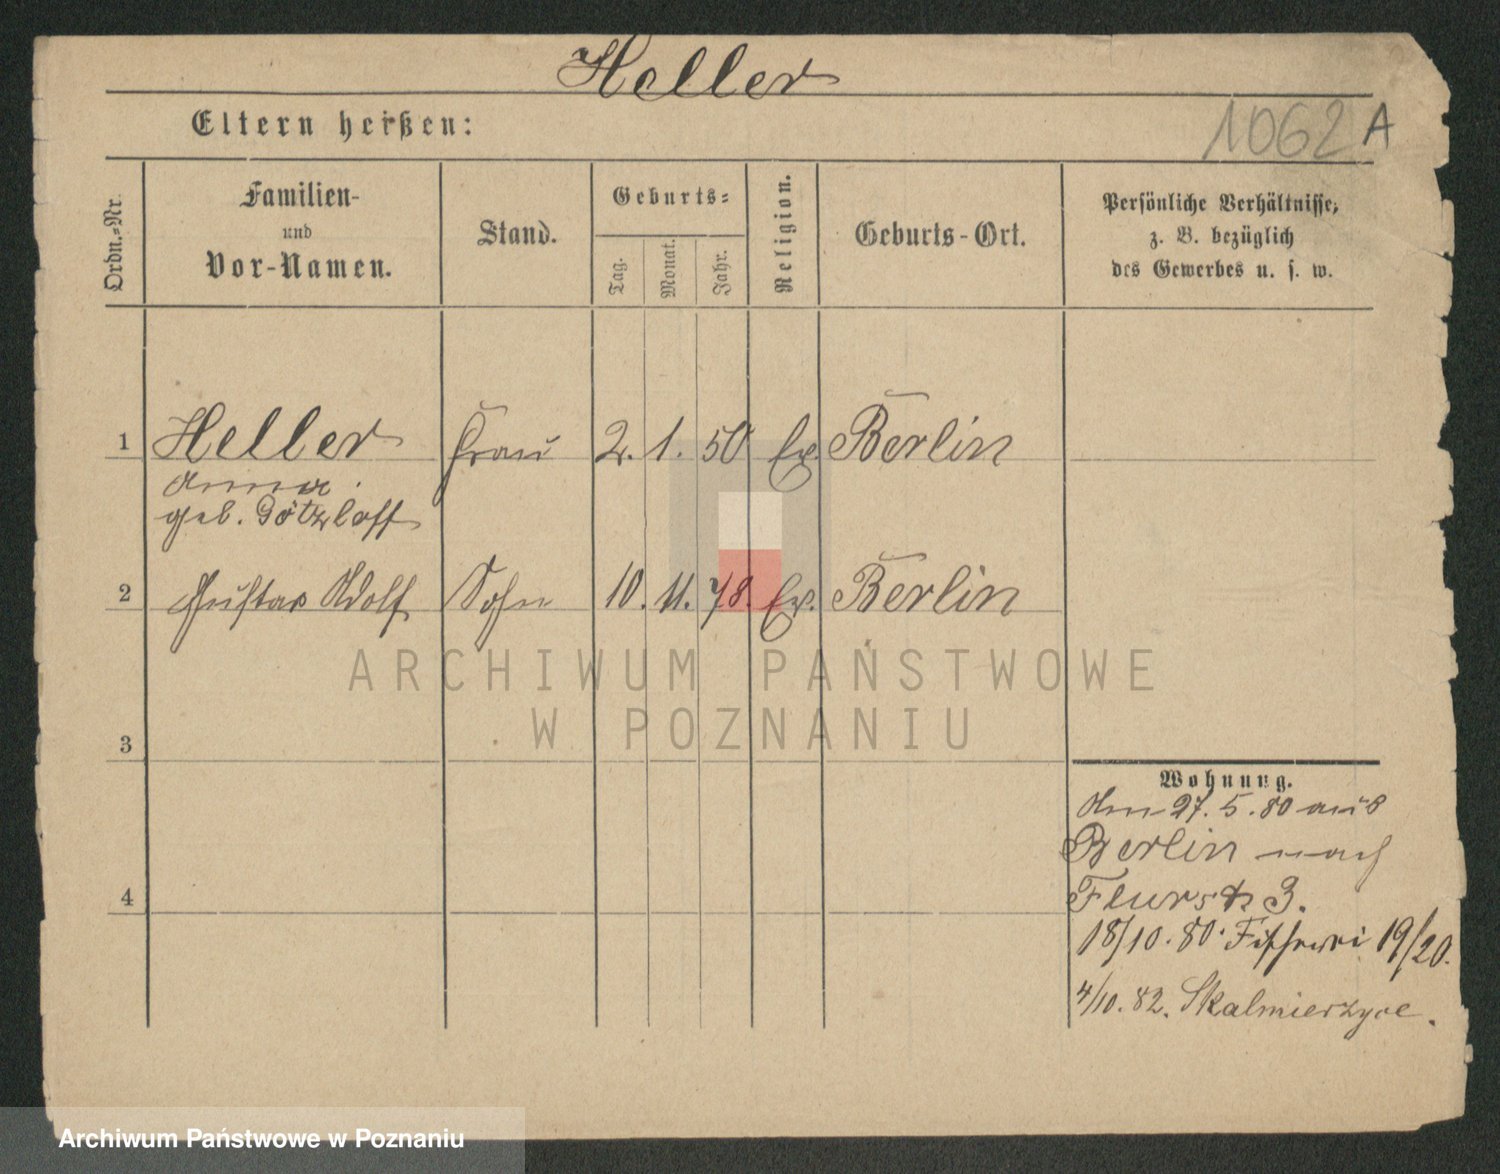 Heller
Eltern heißen:
1062 A
Ordn.-Nr.
Familien-
und
Vor-Namen.
Stand.
Geburts-
Tag.
Monat.
Jahr.
Religion.
Geburts-Ort.
Persönliche Verhältnisse,
z. B. bezüglich
des Gewerbes u. s. w.
1 Heller Frau 2. 1. 50 Ev. Berlin
Anna
geb. Götzlaff
2 Gustav Adolf Sohn 10. 11. 78. Ev. Berlin
ARCHIWUM PAŃSTWOWE
W POZNANIU
3
Wohnung.
Am 27. 5. 80 aus
Berlin nach
4
Flurstr 3.
18/10. 80. Fischerei 19/20.
4/10. 82. Skalmierzyce.
Archiwum Państwowe w Poznaniu